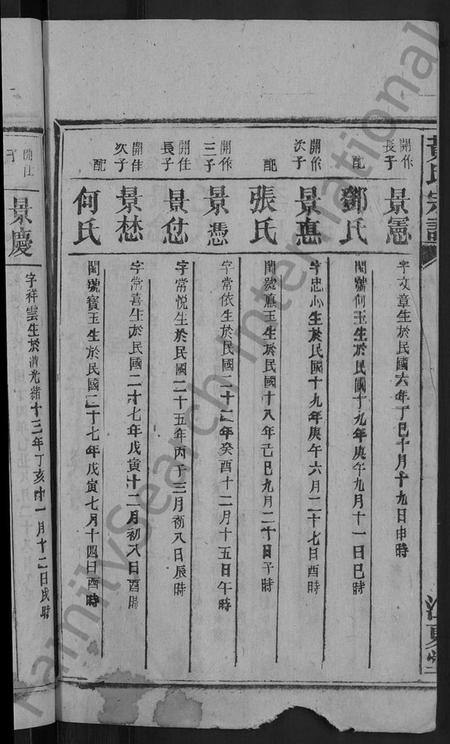 黃氏宗譜
江夏堂
開作長子
景憲
字文章生於民國六年丁巳十月十九日申時
配
鄧氏
閨號何玉生於民國十九年庚午九月十一日巳時
開作次子
景惠
字忠心生於民國十九年庚午六月二十七日酉時
配
張氏
閨號惠玉生於民國十八年己巳九月二十日子時
開作三子
景憑
字常依生於民國二十二年癸酉十二月十五日午時
開任長子
景忿
字常悅生於民國二十五年丙子三月初八日辰時
開任次子
景愁
字常喜生於民國二十七年戊寅十二月初八日酉時
配
何氏
閨號寶玉生於民國二十七年戊寅七月十四日酉時
開仕子
景慶
字祥雲生於清光緒十三年丁亥十一月十二日戌時
FamilySearch International